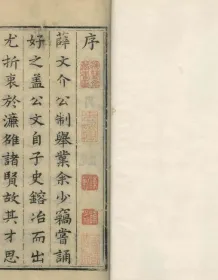 序
薛文介公制舉業余少竊嘗誦
好之盖公文自子史鎔冶而出
尤折衷於濂雒諸賢故其才思